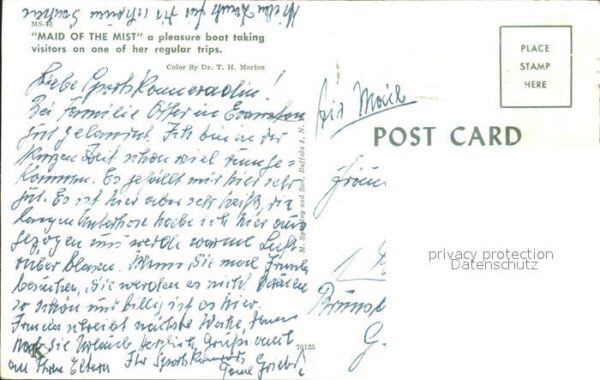 MS-11
"MAID OF THE MIST" a pleasure boat taking
visitors on one of her regular trips.
Color By Dr. T. H. Morton
Liebe Sportskameradin!
Bei Familie in Evanston
gut gelandet. Ich bin in der
kurzen Zeit schon viel rumge-
kommen. Es gefällt mir hier sehr
gut. Es ist hier aber sehr heiß, die
langen Unterhose habe ich hier aus
gezogen und werde warme Luft
rüber blasen. Wenn Sie mal
besuchen, Sie werden es nicht
so schön und billig ist es hier.
schreibt nächste Woche, dann
Sie Urlaub. Herzliche Grüße auch
an Ihre Eltern Ihr Sportskamerad
Vielen Dank für die schönen
M. Spiegley and Son, Buffalo 5, N.
70125
Air Mail
POST CARD
PLACE
STAMP
HERE
privacy protection
Datenschutz
G.